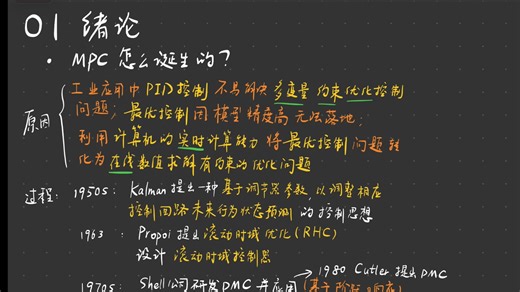 01 绪论
• MPC 怎么诞生的?
原因
工业应用中 PID 控制 不易解决 多变量 约束优化控制
问题; 最优控制因模型精度高 无法落地;
利用计算机的实时计算能力 将最优控制问题转
化为在线数值求解有约束的优化问题
过程: 1950s: Kalman 提出一种基于调节器参数, 以调整相应
控制回路未来行为状态预测的控制思想
1963: Propoi 提出滚动时域优化(RHC)
设计 滚动时域控制器
→ 1980 Cutler 提出 DMC
1970s: Shell公司研发 DMC 并应用 (基于阶跃响应)